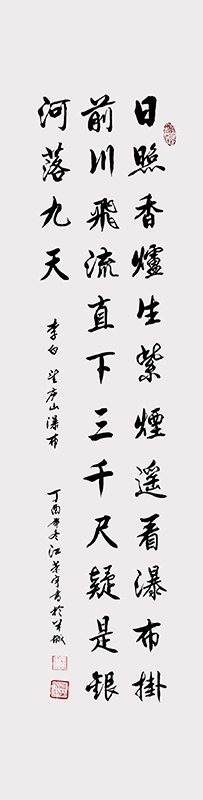 日照香爐生紫煙遥看瀑布掛
前川飛流直下三千尺疑是銀
河落九天
李白 望庐山瀑布
丁酉年冬江